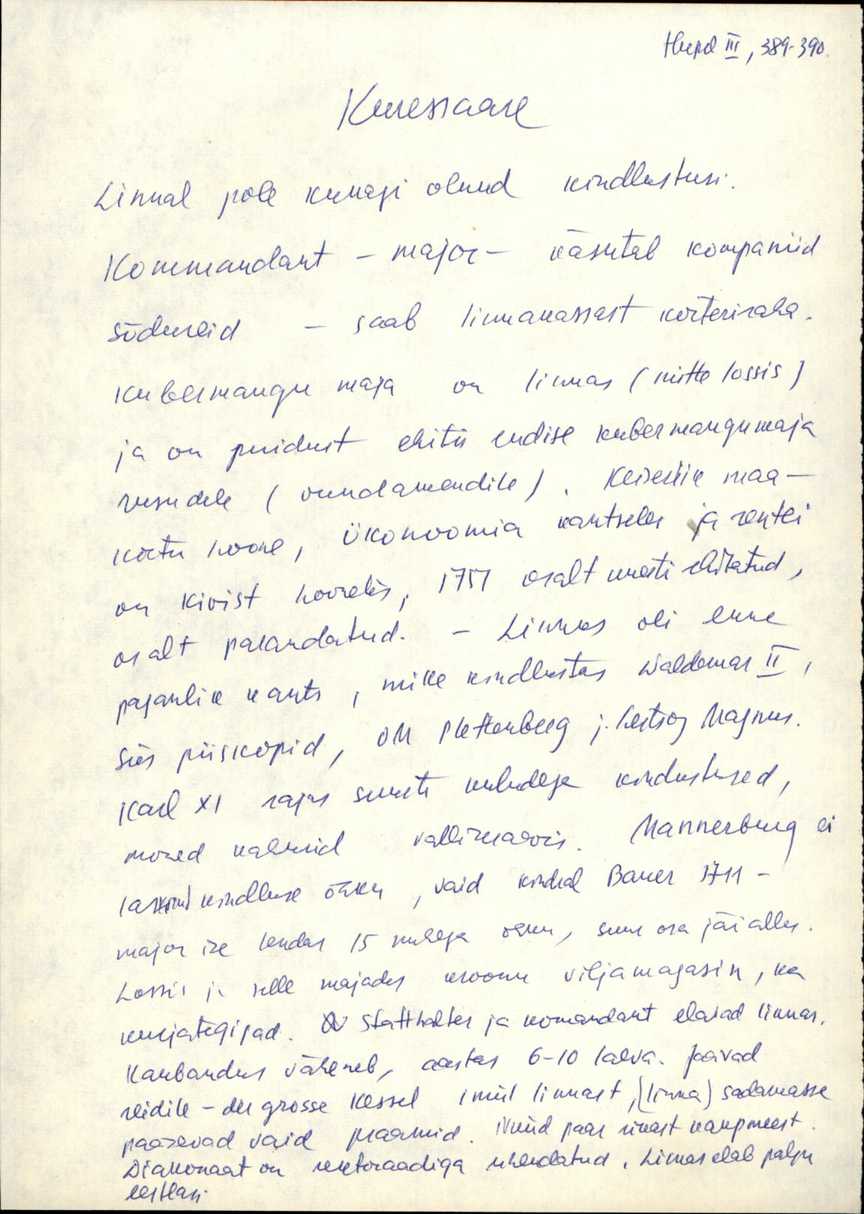 Hupel III, 389-390.
Kuressaare
Linnal pole kunagi olnud kindlustusi.
Kommandant - major - käsutab kompaniid
sõdureid - saab linnakassast korteriraha.
Kubermangu maja on linnas (mitte lossis)
ja on puidust ehitis endise kubermangumaja
vundamendile). maa-
kohtu hoone, ökonoomia kantselei ja rentei
on kivist hooneks, 1751 osalt uuesti ehitatud,
osalt parandatud. - Linnas oli enne
paganlik kants, mille kindlustas Waldemar II,
siis piiskopid, OM Plettenberg j. hertsog Magnus.
Karl XI rajas suurte kuludega kindlustused,
mõned kaevused vallikraavis. Mannerburg ei
lasknud kindluse õhku, vaid kindral Bauer 1711 -
major ise lendas 15 mehega õhku, suur osa jäi alles.
Lossis ja selle majades kroonu viljamagasin, ka
kurjategijad. Statthalter ja komandant elavad linnas.
Kaubandus väheneb, aastas 6-10 laeva. Jäävad
reidile - der grosse Kessel 1 miil linnast, (linna) sadamasse
pääsevad vaid praamid. Nüüd paar rikast kaupmeest.
Diakonaat on rektoraadiga ühendatud. Linnas elab palju
eestlasi.